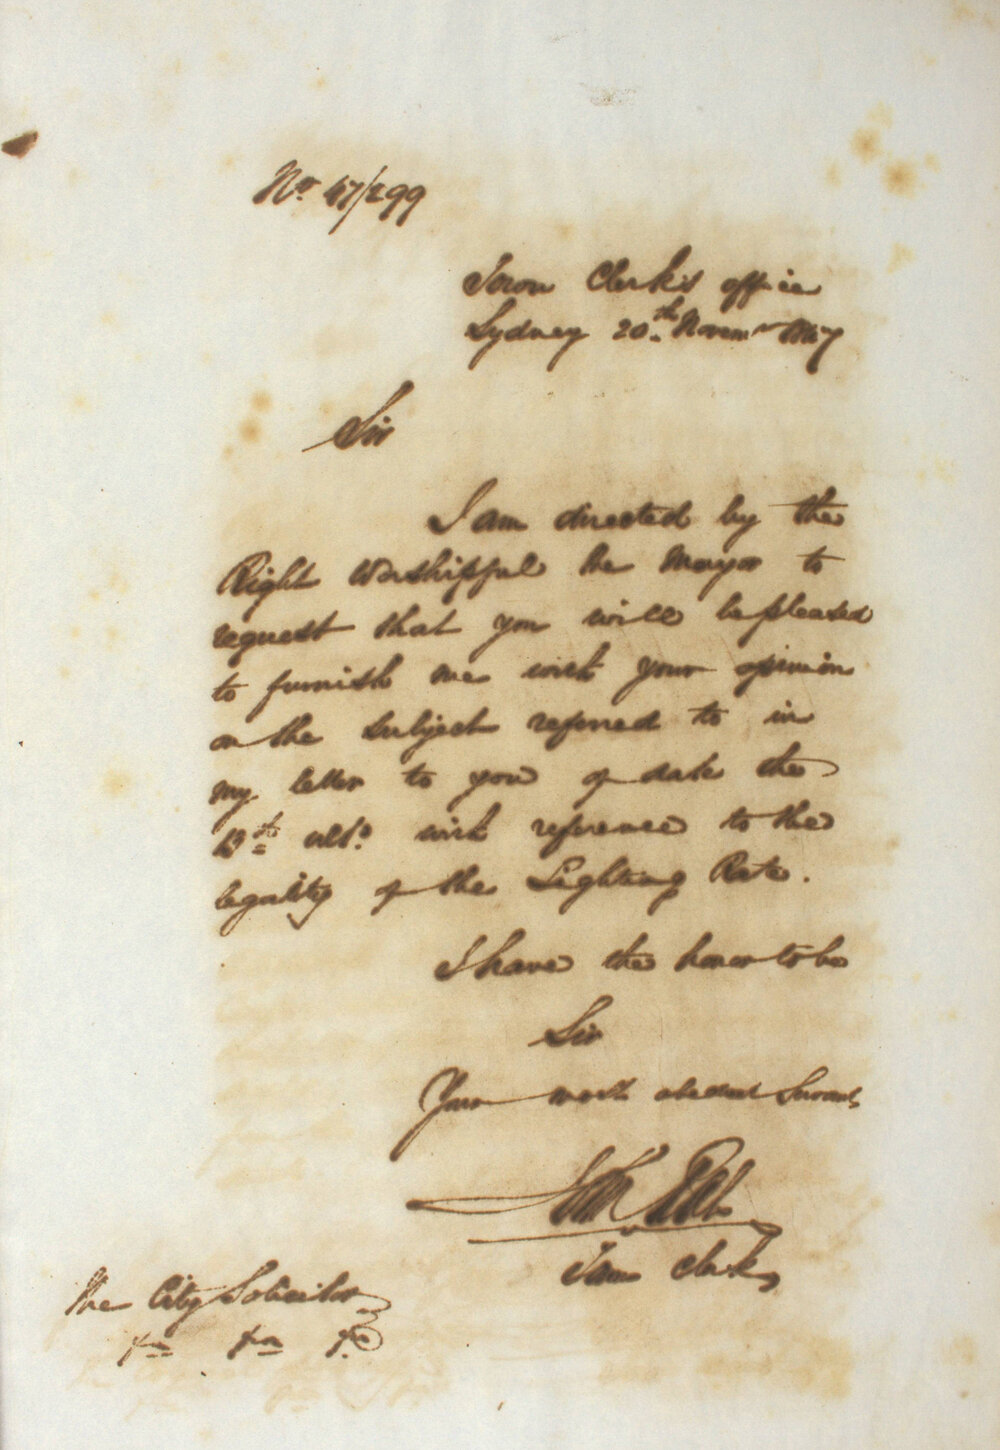 No. 47/299
Town Clerk's office
Sydney 20th Novemr 1847
Sir
I am directed by the
Right Worshipful the Mayor to
request that you will be pleased
to furnish me with your opinion
on the subject referred to in
my letter to you of date the
13th ulto. with reference to the
legality of the Lighting Rate.
I have the honor to be
Sir
Your most obedient Servant
Town Clerk
The City Solicitor
&c &c &c